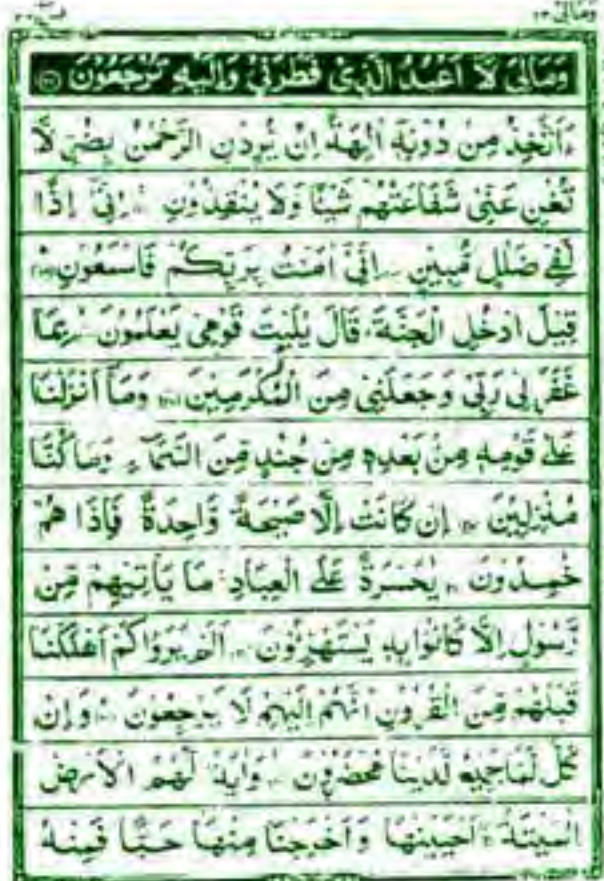 ومالی ۲۳
یٰسٓ ۳۶
وَمَالِیَ لَآ اَعْبُدُ الَّذِیْ فَطَرَنِیْ وَاِلَیْهِ تُرْجَعُوْنَ
ءَاَتَّخِذُ مِنْ دُوْنِهٖۤ اٰلِهَةً اِنْ یُّرِدْنِ الرَّحْمٰنُ بِضُرٍّ لَّا
تُغْنِ عَنِّیْ شَفَاعَتُهُمْ شَیْـًٔا وَّلَا یُنْقِذُوْنِ اِنِّیْۤ اِذًا
لَّفِیْ ضَلٰلٍ مُّبِیْنٍ اِنِّیْۤ اٰمَنْتُ بِرَبِّكُمْ فَاسْمَعُوْنِ
قِیْلَ ادْخُلِ الْجَنَّةَ قَالَ یٰلَیْتَ قَوْمِیْ یَعْلَمُوْنَ بِمَا
غَفَرَ لِیْ رَبِّیْ وَجَعَلَنِیْ مِنَ الْمُكْرَمِیْنَ وَمَاۤ اَنْزَلْنَا
عَلٰی قَوْمِهٖ مِنْۢ بَعْدِهٖ مِنْ جُنْدٍ مِّنَ السَّمَآءِ وَمَا كُنَّا
مُنْزِلِیْنَ اِنْ كَانَتْ اِلَّا صَیْحَةً وَّاحِدَةً فَاِذَا هُمْ
خٰمِدُوْنَ یٰحَسْرَةً عَلَی الْعِبَادِ مَا یَاْتِیْهِمْ مِّنْ
رَّسُوْلٍ اِلَّا كَانُوْا بِهٖ یَسْتَهْزِءُوْنَ اَلَمْ یَرَوْا كَمْ اَهْلَكْنَا
قَبْلَهُمْ مِّنَ الْقُرُوْنِ اَنَّهُمْ اِلَیْهِمْ لَا یَرْجِعُوْنَ وَاِنْ
كُلٌّ لَّمَّا جَمِیْعٌ لَّدَیْنَا مُحْضَرُوْنَ وَاٰیَةٌ لَّهُمُ الْاَرْضُ
الْمَیْتَةُ اَحْیَیْنٰهَا وَاَخْرَجْنَا مِنْهَا حَبًّا فَمِنْهُ